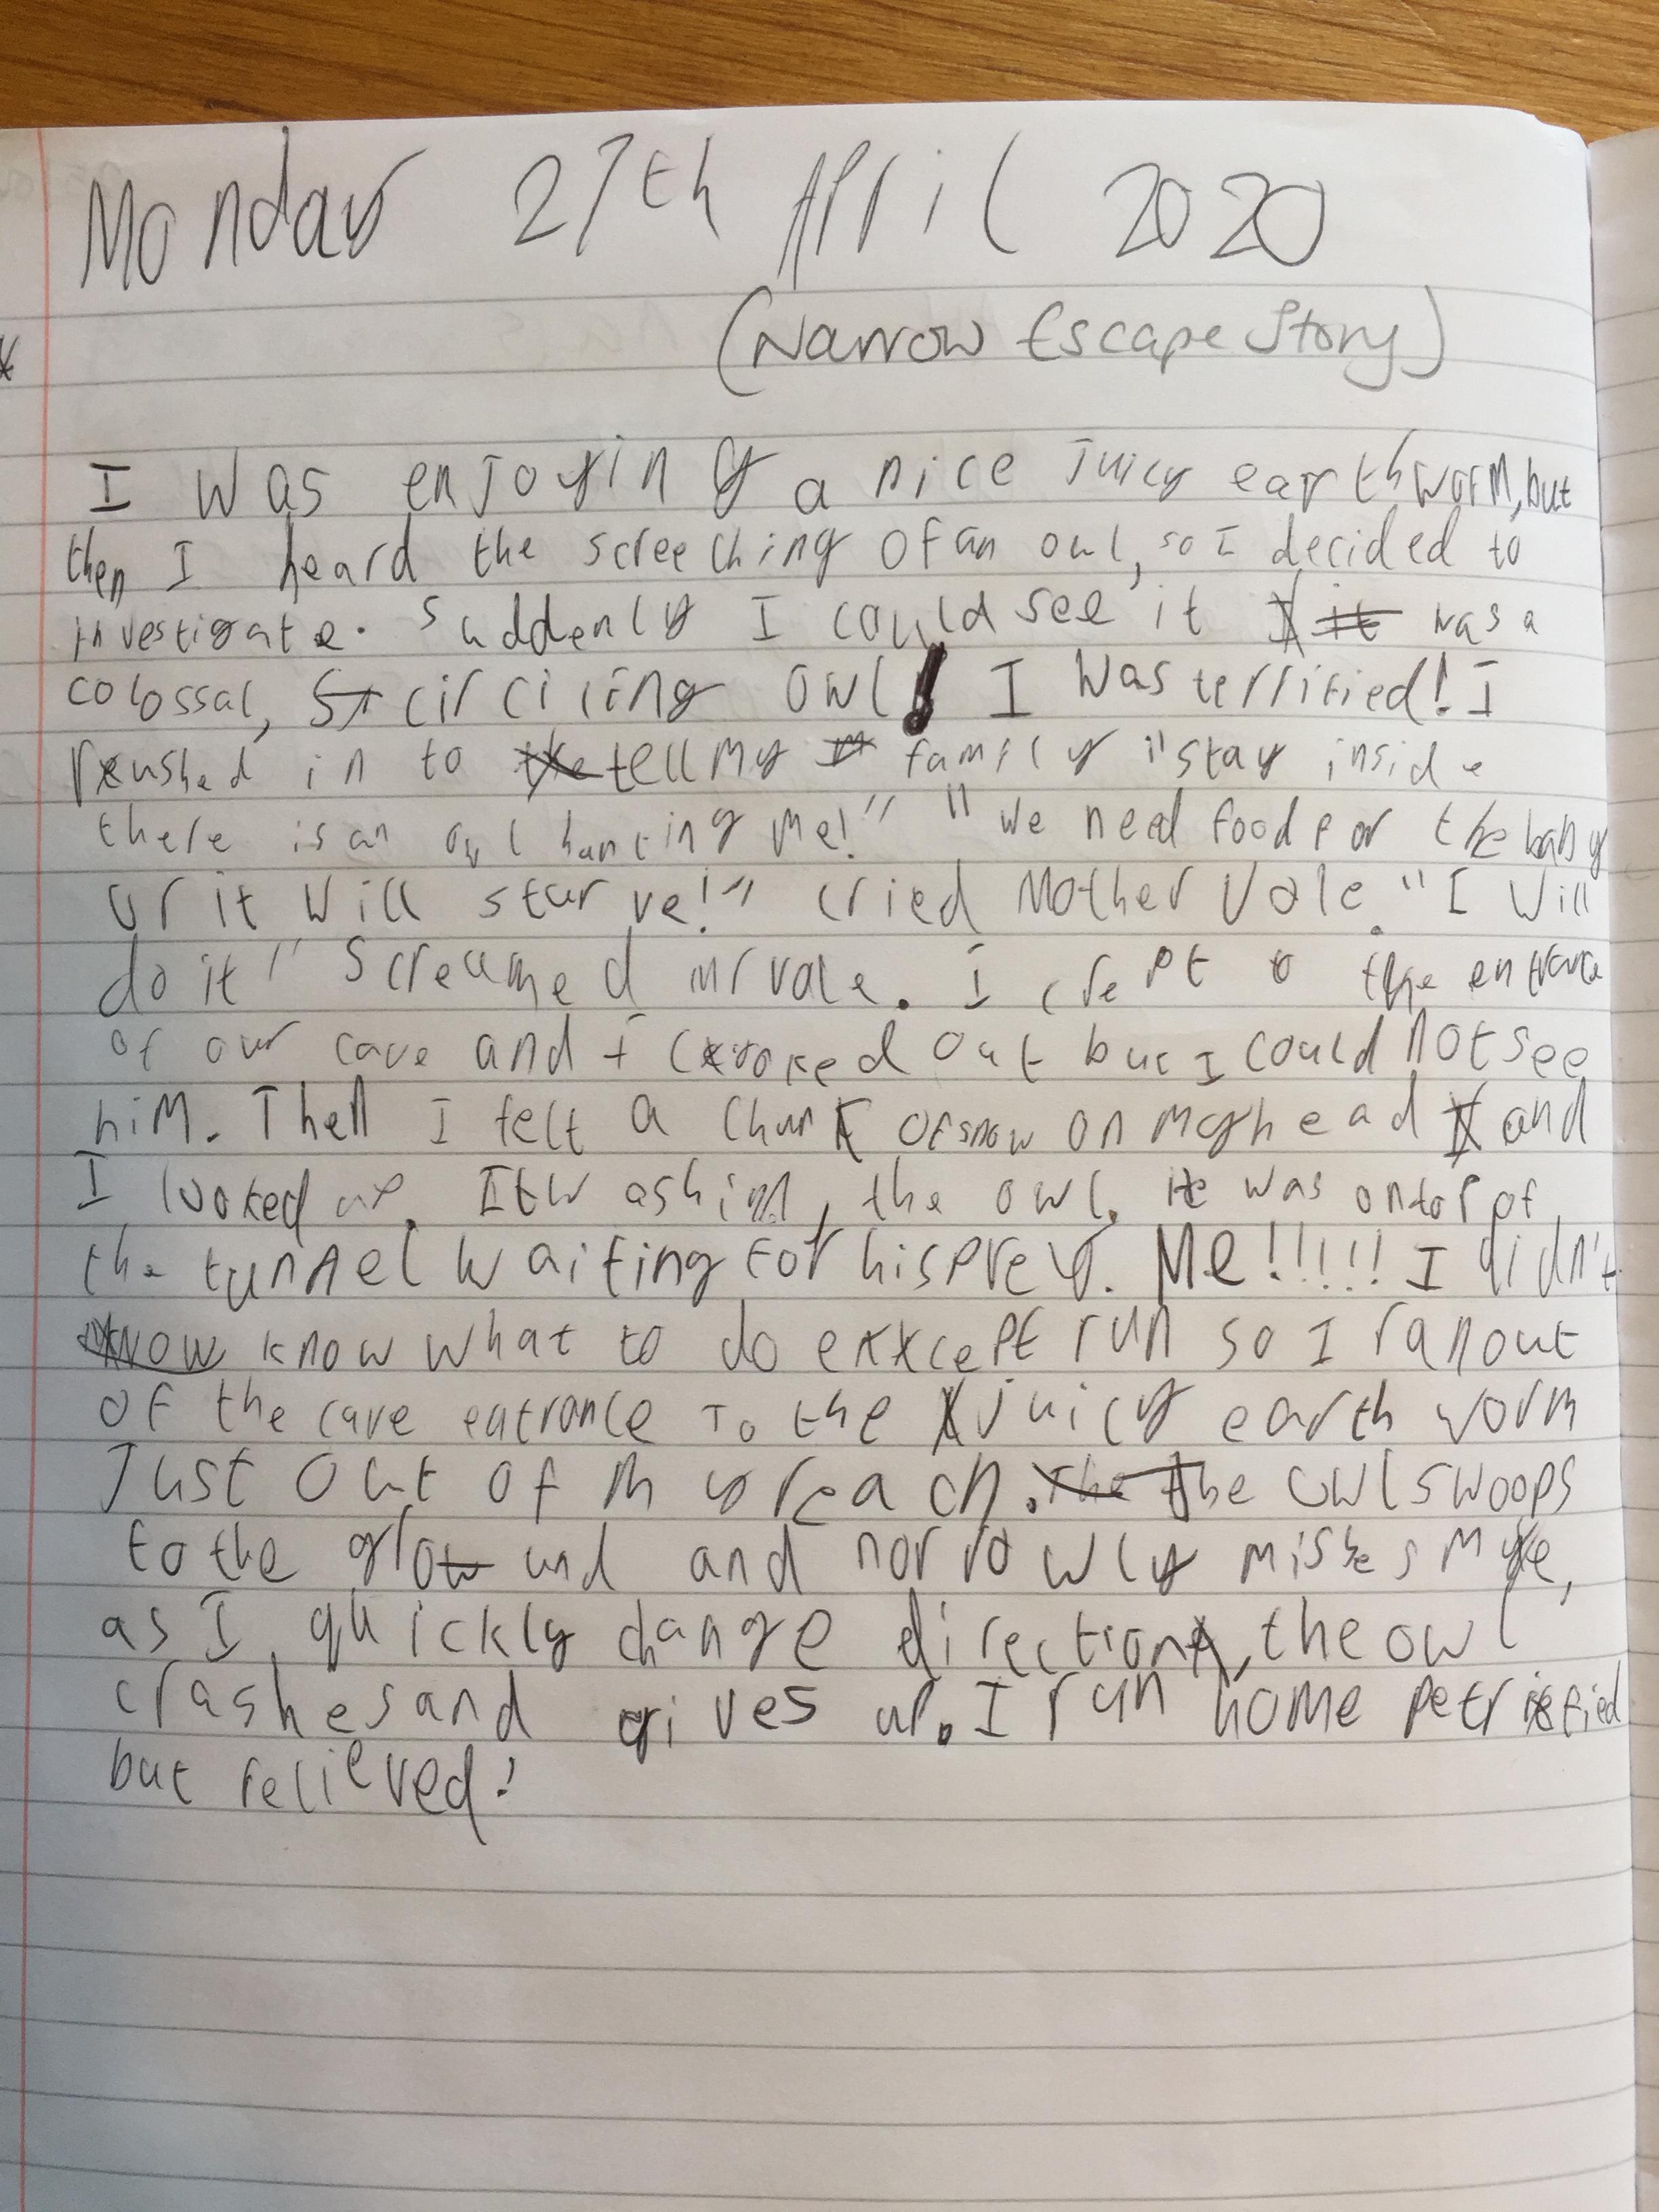 Monday 27th April 2020
(Narrow Escape Story)
I was enjoying a nice juicy earthworm, but
then I heard the screeching of an owl, so I decided to
investigate. Suddenly I could see it was a
colossal, circiling owl! I was terrified! I
rushed in to tell my family "stay inside
there is an owl hunting me!" "we need food for the baby
or it will starve!" cried Mother Vole. "I will
do it" Screamed mr vole. I crept to the entrance
of our cave and I looked out but I could not see
him. Then I felt a chunk of snow on my head and
I looked up. It was him, the owl. He was on top of
the tunnel waiting for his prey. Me!!!!! I didn't
know what to do except run so I ran out
of the cave entrance To the juicy earth worm
Just out of my reach. The owl swoops
to the ground and norrowly misses me,
as I quickly change direction, the owl
crashes and gives up. I run home petrified
but relieved!